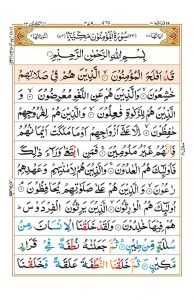 سُورَةُ الْمُؤْمِنُونَ مَكِّيَّةٌ
بِسْمِ اللّٰهِ الرَّحْمٰنِ الرَّحِيْمِ
قَدْ اَفْلَحَ الْمُؤْمِنُوْنَ ۙ الَّذِيْنَ هُمْ فِيْ صَلَاتِهِمْ
خٰشِعُوْنَ ۙ وَالَّذِيْنَ هُمْ عَنِ اللَّغْوِ مُعْرِضُوْنَ ۙ
وَالَّذِيْنَ هُمْ لِلزَّكٰوةِ فٰعِلُوْنَ ۙ وَالَّذِيْنَ هُمْ لِفُرُوْجِهِمْ
حٰفِظُوْنَ ۙ اِلَّا عَلٰٓى اَزْوَاجِهِمْ اَوْ مَا مَلَكَتْ اَيْمَانُهُمْ
فَاِنَّهُمْ غَيْرُ مَلُوْمِيْنَ ۚ فَمَنِ ابْتَغٰى وَرَآءَ ذٰلِكَ
فَاُولٰٓئِكَ هُمُ الْعٰدُوْنَ ۚ وَالَّذِيْنَ هُمْ لِاَمٰنٰتِهِمْ وَعَهْدِهِمْ
رٰعُوْنَ ۙ وَالَّذِيْنَ هُمْ عَلٰى صَلَوٰتِهِمْ يُحَافِظُوْنَ ۘ
اُولٰٓئِكَ هُمُ الْوٰرِثُوْنَ ۙ الَّذِيْنَ يَرِثُوْنَ الْفِرْدَوْسَ ؕ
هُمْ فِيْهَا خٰلِدُوْنَ ۞ وَلَقَدْ خَلَقْنَا الْاِنْسَانَ مِنْ
سُلٰلَةٍ مِّنْ طِيْنٍ ۚ ثُمَّ جَعَلْنٰهُ نُطْفَةً فِيْ قَرَارٍ
مَّكِيْنٍ ۪ ثُمَّ خَلَقْنَا النُّطْفَةَ عَلَقَةً فَخَلَقْنَا